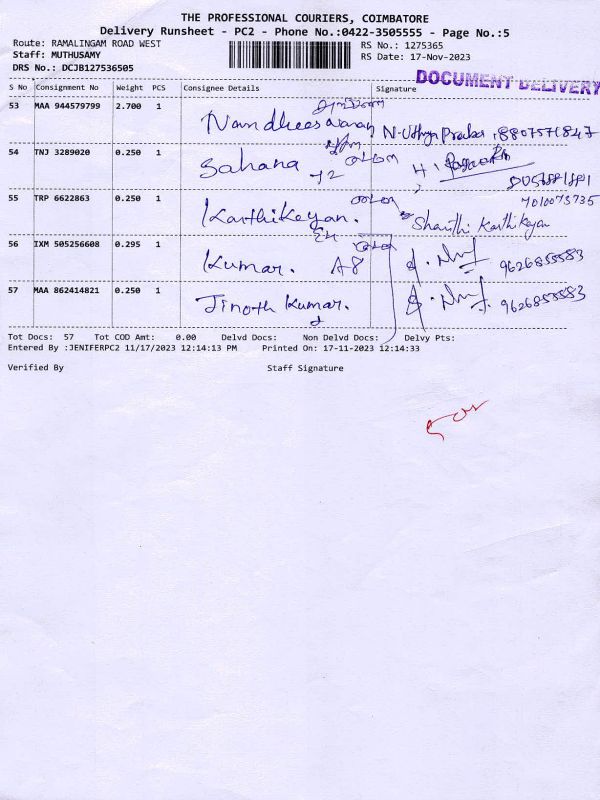 THE PROFESSIONAL COURIERS, COIMBATORE
Delivery Runsheet - PC2 - Phone No.:0422-3505555 - Page No.:5
Route: RAMALINGAM ROAD WEST
RS No.: 1275365
Staff: MUTHUSAMY
RS Date: 17-Nov-2023
DRS No.: DCJB127536505
DOCUMENT DELIVERY
S No Consignment No Weight PCS Consignee Details Signature
53 MAA 944579799 2.700 1 Nandheeswaran 8807571847
54 TNJ 3289020 0.250 1 Sahana
7010073735
55 TRP 6622863 0.250 1 Karthikeyan. Shanthi Karthikeyan
56 IXM 505256608 0.295 1 Kumar. A8 9626858583
57 MAA 862414821 0.250 1 Jinoth Kumar. 9626858583
Tot Docs: 57 Tot COD Amt: 0.00 Delvd Docs: Non Delvd Docs: Delvy Pts:
Entered By :JENIFERPC2 11/17/2023 12:14:13 PM Printed On: 17-11-2023 12:14:33
Verified By Staff Signature